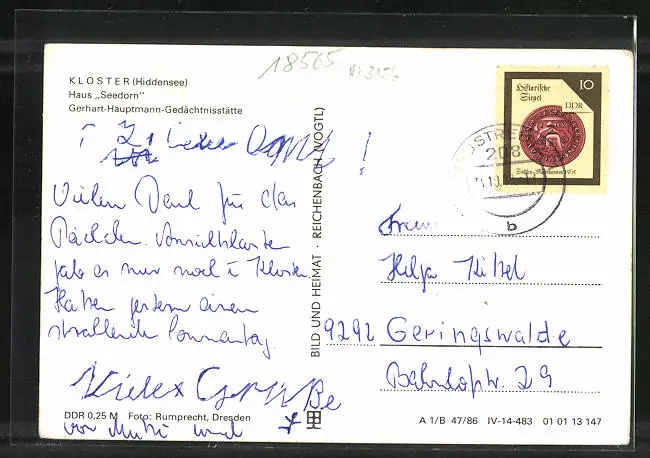 18565
KLOSTER (Hiddensee)
Haus „Seedorn"
Gerhart-Hauptmann-Gedächtnisstätte
!
Vielen Dank für das
Päckchen. Ansichtskarte
gab es nur noch i Kloster
Hatten gestern einen
strahlende Sonnentag.
Viele Grüße
von Mutti und
DDR 0,25 M Foto: Rumprecht, Dresden
BILD UND HEIMAT · REICHENBACH (VOGTL)
Historische
Siegel
10
DDR
208
b
Helga Kittel
9292 Geringswalde
Bahnhofstr. 29
A 1/B 47/86 IV-14-483 01 01 13 147